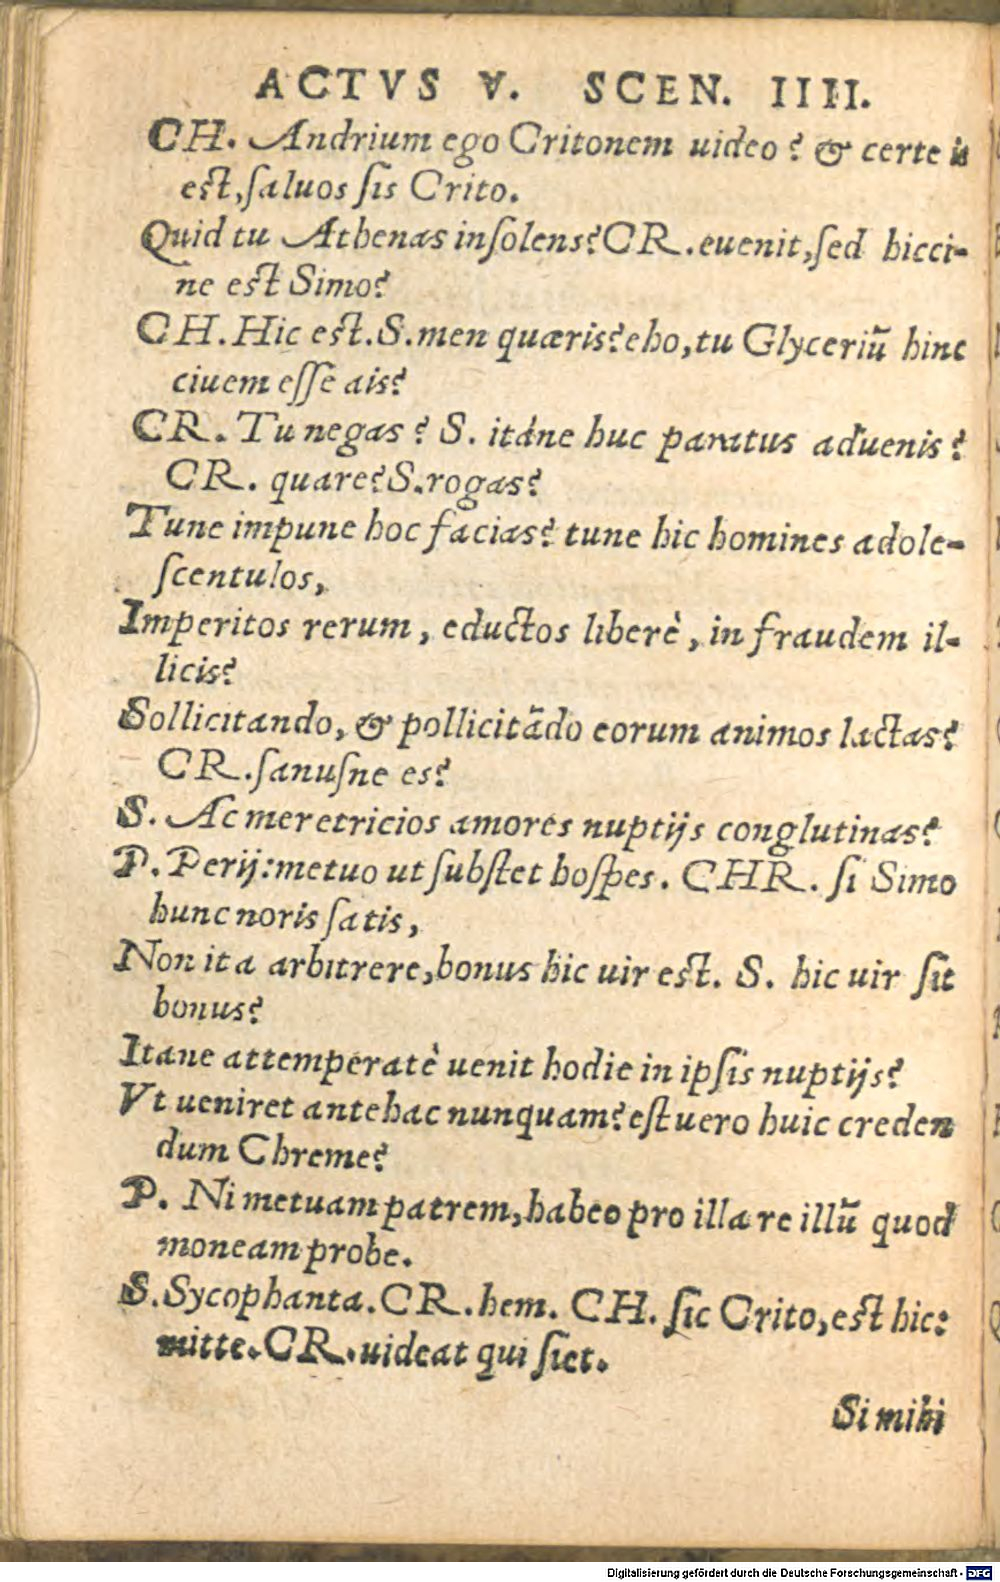 ACTVS V. SCEN. IIII.
CH. Andrium ego Critonem uideo? & certe is
est, saluos sis Crito.
Quid tu Athenas insolens? CR. euenit, sed hicci-
ne est Simo?
CH. Hic est. S. men quæris? eho, tu Glyceriū hinc
ciuem esse ais?
CR. Tu negas? S. itáne huc paratus aduenis?
CR. quare? S. rogas?
Tune impune hoc facias? tune hic homines adole-
scentulos,
Imperitos rerum, eductos liberè, in fraudem il-
licis?
Sollicitando, & pollicitādo eorum animos lactas?
CR. sanusne es?
S. Ac meretricios amores nuptijs conglutinas?
P. Perij: metuo ut substet hospes. CHR. si Simo
hunc noris satis,
Non ita arbitrere, bonus hic uir est. S. hic uir sit
bonus?
Itane attemperatè uenit hodie in ipsis nuptijs?
Vt ueniret antehac nunquam? est uero huic creden
dum Chreme?
P. Ni metuam patrem, habeo pro illa re illū quod
moneam probe.
S. Sycophanta. CR. hem. CH. sic Crito, est hic:
mitte. CR. uideat qui siet.
Si mihi
Digitalisierung gefördert durch die Deutsche Forschungsgemeinschaft - DFG